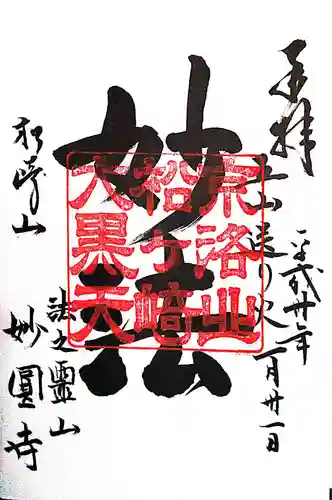 奉拝
五山送り火
平成廿年
月廿一日
妙法
京洛北
松ヶ崎
大黒天
松崎山
法之靈山
妙圓寺